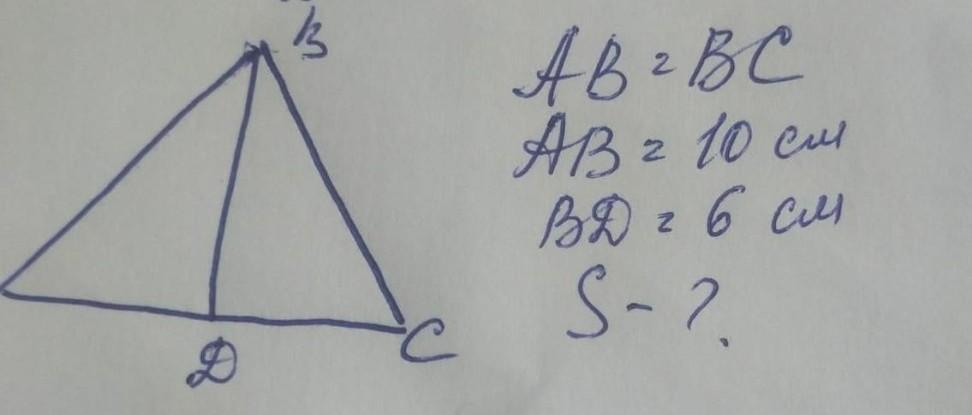 B
D
C
AB = BC
AB = 10 см
BD = 6 см
S - ?